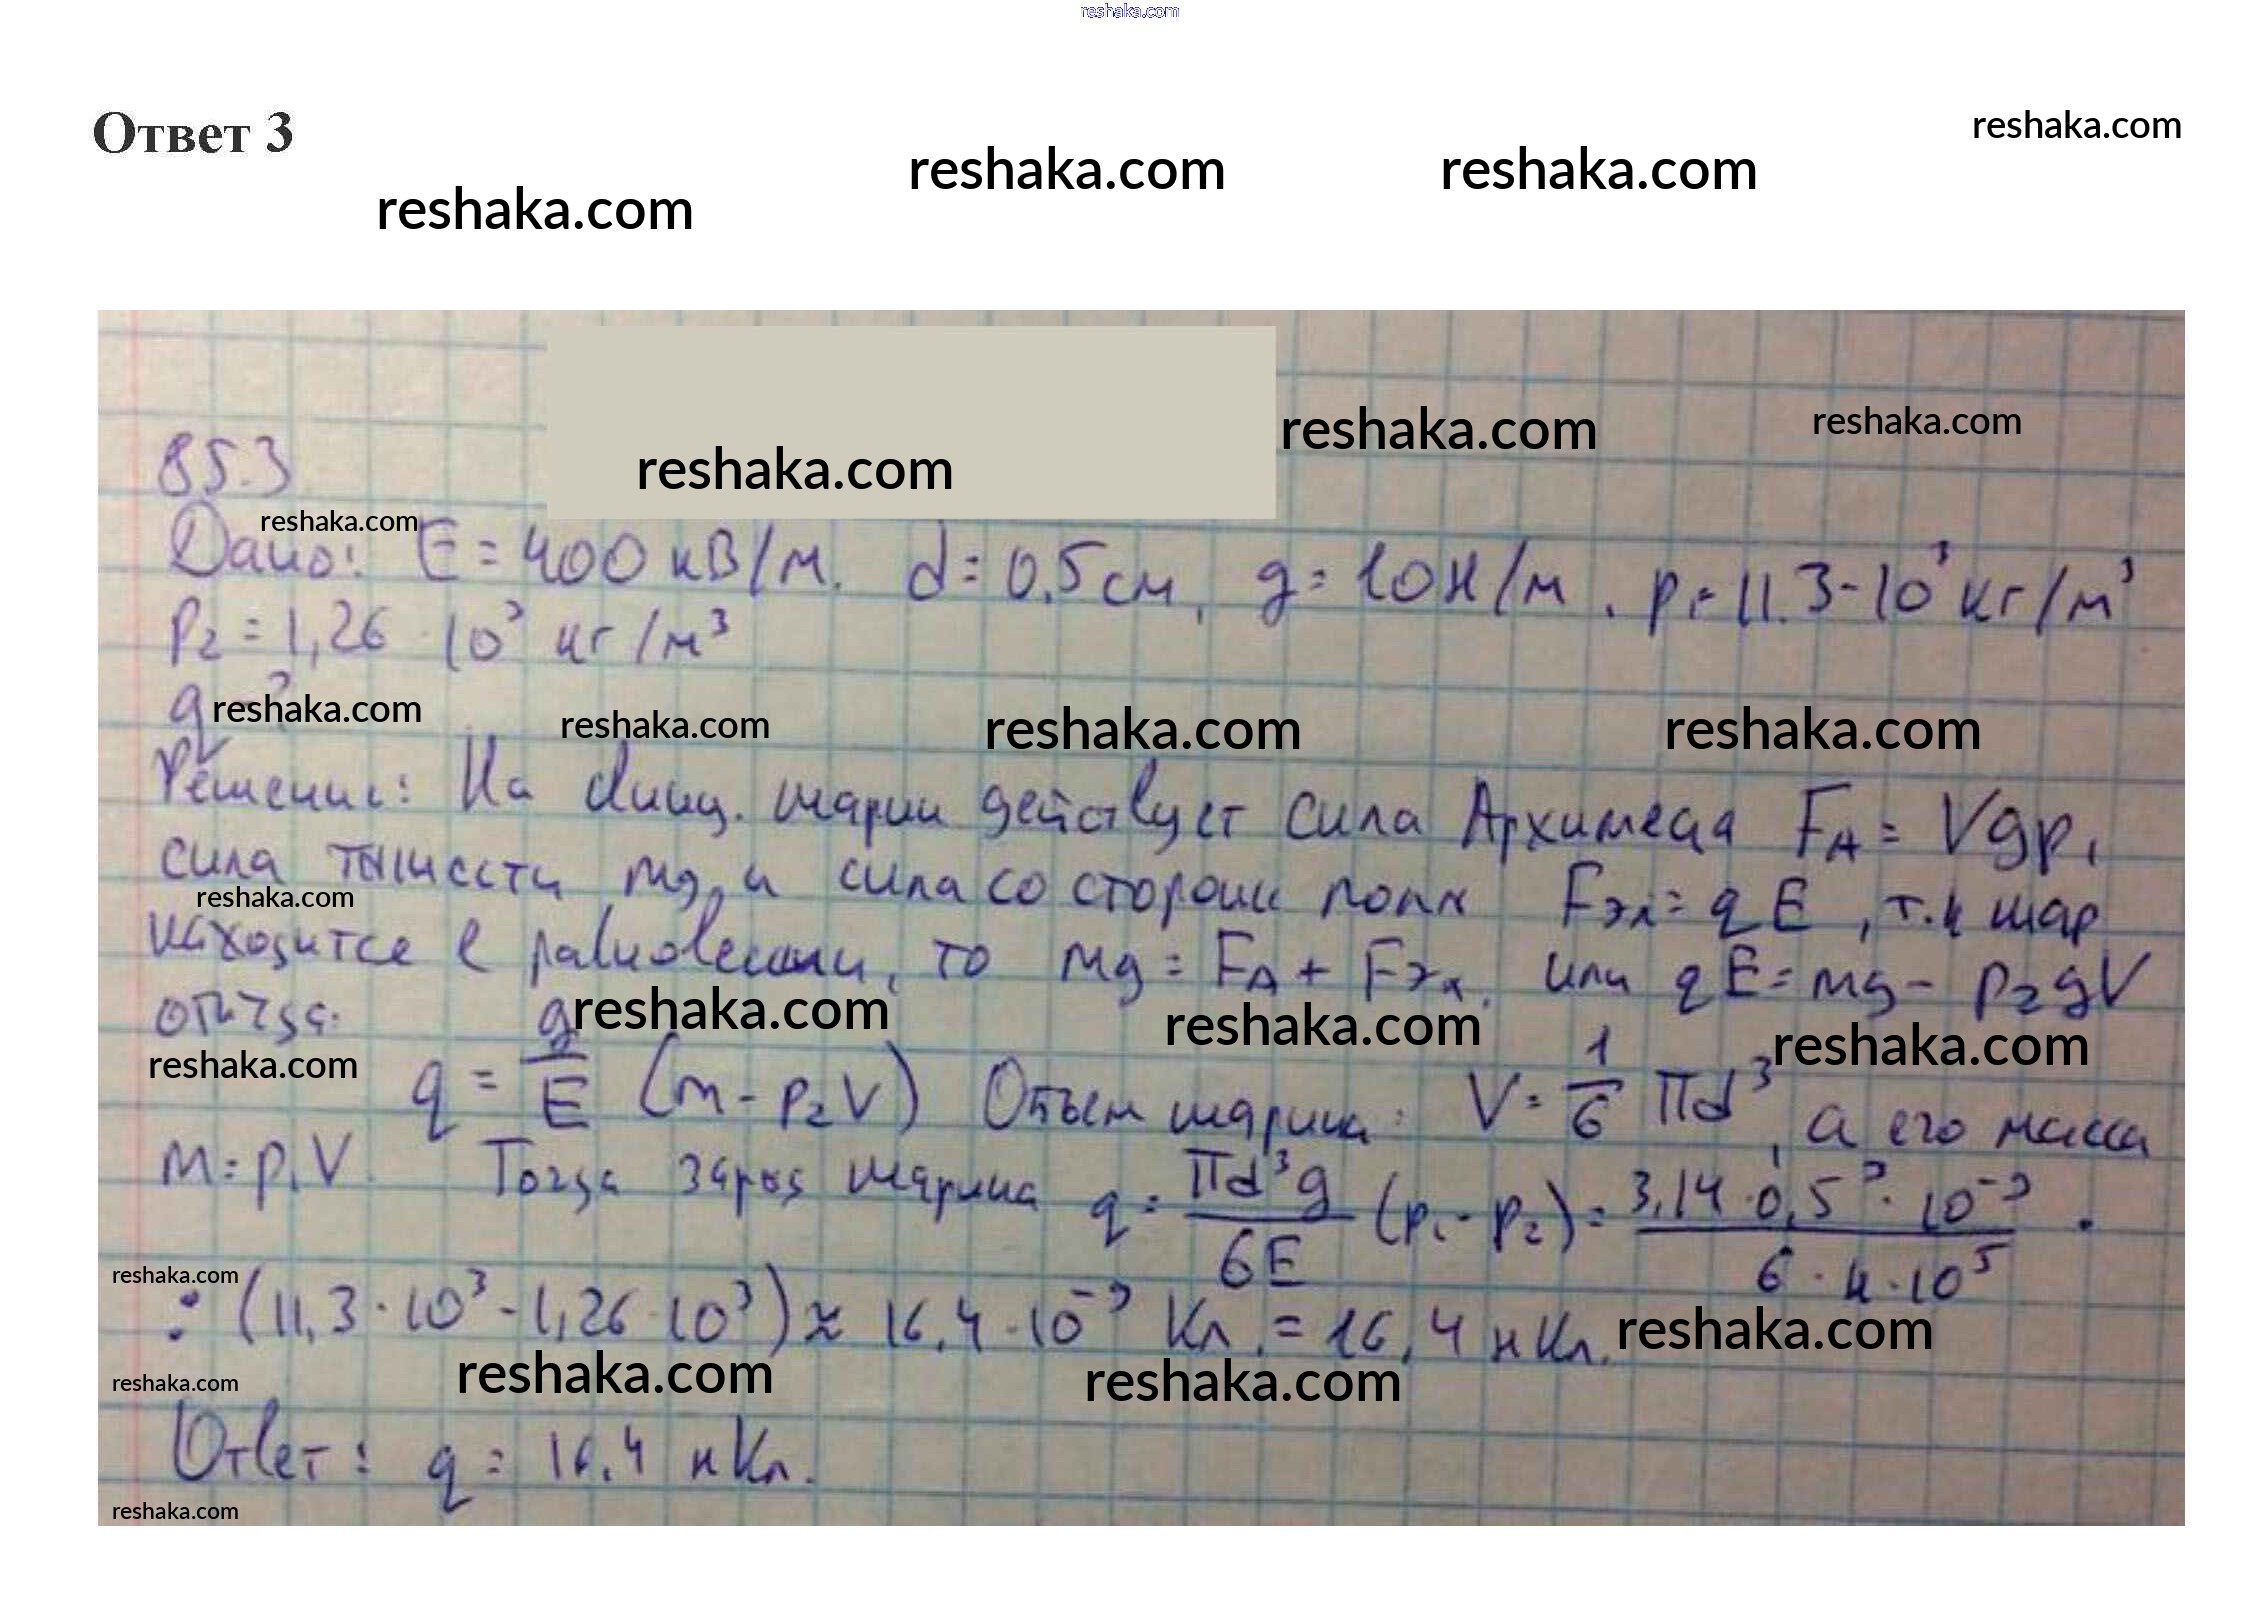 reshaka.com
Ответ 3
reshaka.com
reshaka.com reshaka.com
reshaka.com
reshaka.com reshaka.com
reshaka.com
85.3
reshaka.com
Дано: E = 400 кВ/м. d = 0.5 см, g = 10 Н/м. ρ₁ = 11.3·10³ кг/м³
ρ₂ = 1,26·10³ кг/м³
q - ?
reshaka.com reshaka.com reshaka.com reshaka.com
Решение: На шарик действует сила Архимеда F_A = Vgρ,
сила тяжести mg, и сила со стороны поля Fэл = qE, т.к шар
reshaka.com
находится в равновесии, то mg = F_A + Fэл. или qE = mg - ρ₂gV
откуда:
reshaka.com reshaka.com reshaka.com
reshaka.com
q = g/E (m - ρ₂V) Объем шарика: V = 1/6 πd³, а его масса
m = ρ₁V. Тогда заряд шарика q = πd³g/6E (ρ₁ - ρ₂) = 3,14·0,5³·10⁻³/6·4·10⁵ ·
reshaka.com
· (11,3·10³ - 1,26·10³) ≈ 16,4·10⁻⁹ Кл. = 16,4 нКл.
reshaka.com
reshaka.com reshaka.com reshaka.com
Ответ: q = 16,4 нКл.
reshaka.com